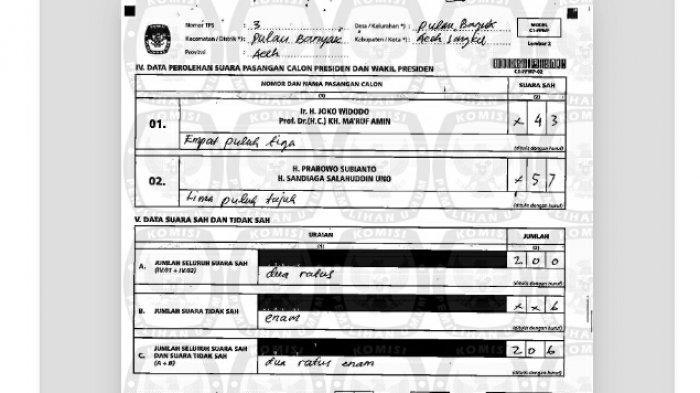 Nomor TPS : 3 Desa / Kelurahan *) : Pulau
Kecamatan / Distrik *) : Pulau Banyak Kabupaten / Kota *) : Aceh Singkil
Provinsi : Aceh
MODEL
C1-PPWP
Lembar 2
C1-PPWP-02
IV. DATA PEROLEHAN SUARA PASANGAN CALON PRESIDEN DAN WAKIL PRESIDEN
NOMOR DAN NAMA PASANGAN CALON SUARA SAH
(1) (2)
01. Ir. H. JOKO WIDODO
Prof. Dr.(H.C.) KH. MA'RUF AMIN
x 4 3
Empat puluh tiga (ditulis dengan huruf)
02. H. PRABOWO SUBIANTO
H. SANDIAGA SALAHUDDIN UNO
x 5 7
Lima puluh tujuh (ditulis dengan huruf)
V. DATA SUARA SAH DAN TIDAK SAH
URAIAN JUMLAH
(1) (2)
A. JUMLAH SELURUH SUARA SAH
(IV.01 + IV.02)
2 0 0
dua ratus (ditulis dengan huruf)
B. JUMLAH SUARA TIDAK SAH
x x 6
enam (ditulis dengan huruf)
C. JUMLAH SELURUH SUARA SAH
DAN SUARA TIDAK SAH
(A + B)
2 0 6
dua ratus enam (ditulis dengan huruf)